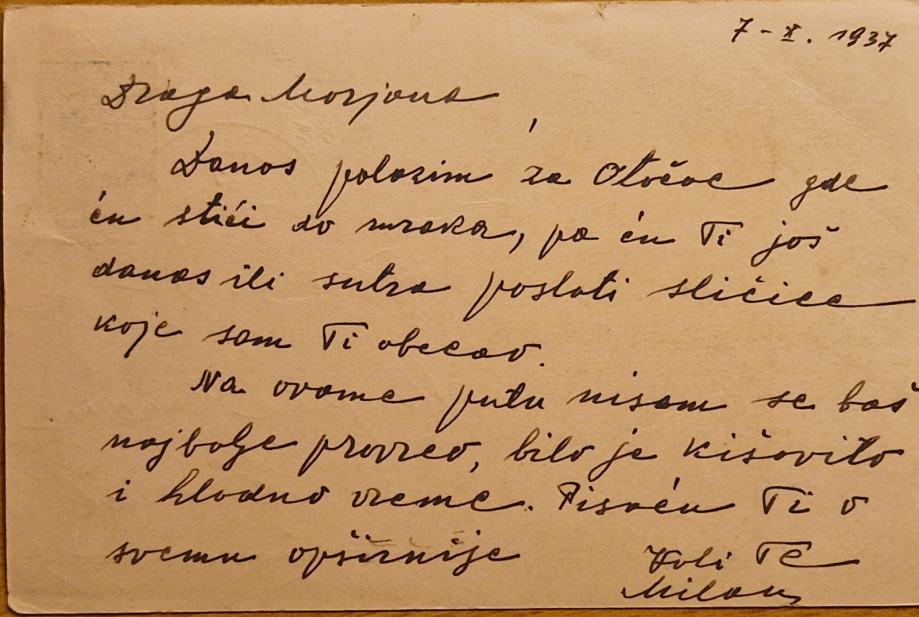 7-X. 1937
Draga Morjana
Danas polazim za Otočac gde
ću stići do mraka, pa ću Ti još
danas ili sutra poslati sličice
koje sam Ti obećao.
Na ovome putu nisam se baš
najbolje proveo, bilo je kišovito
i hladno vreme. Pisaću Ti o
svemu opširnije
Voli Te
Milan